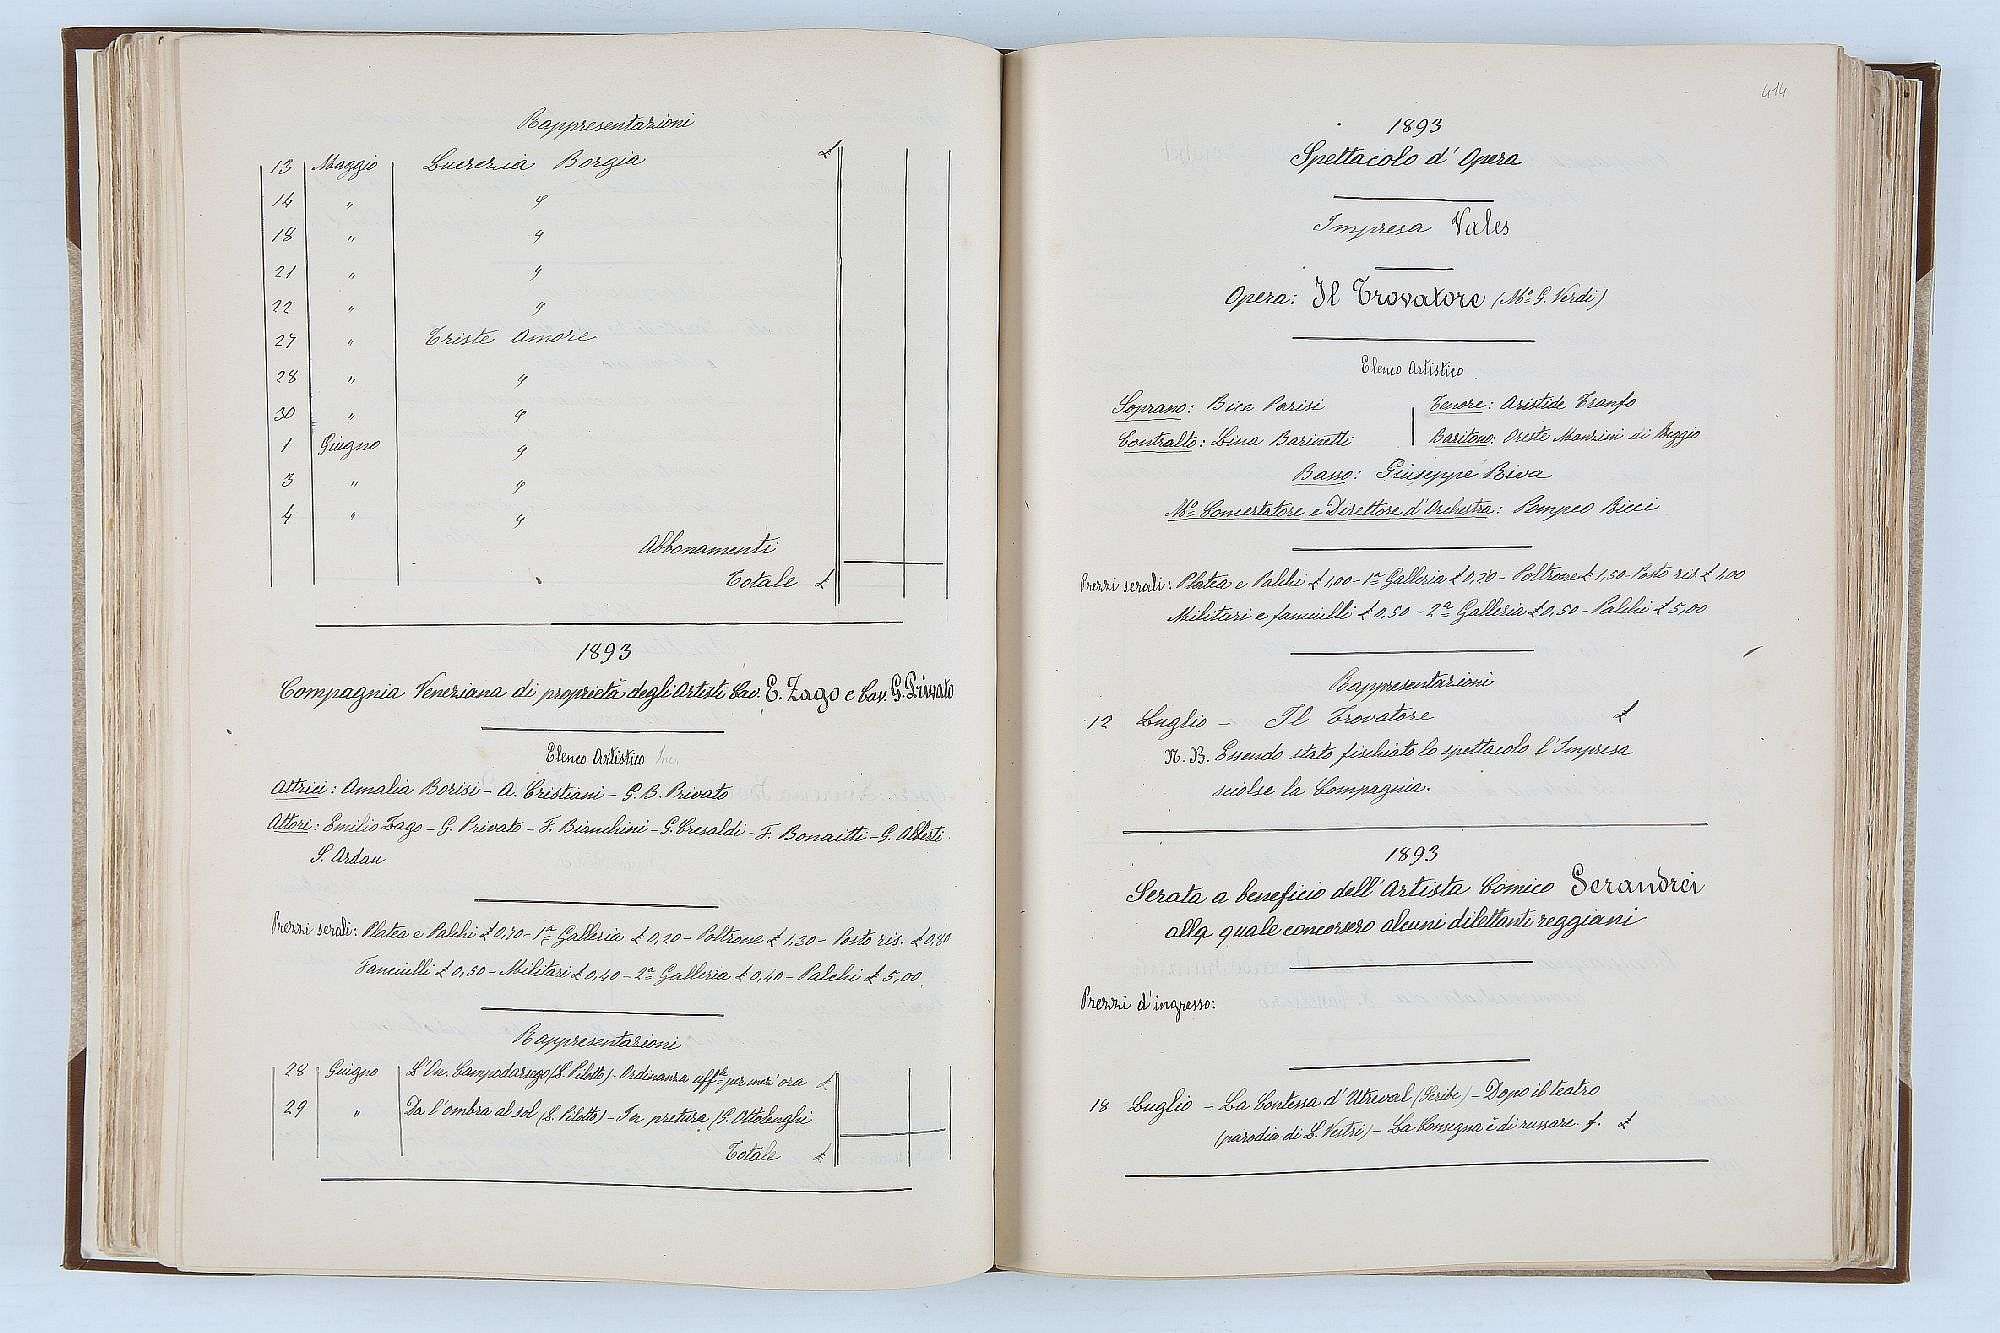 Rappresentazioni
13 Maggio Lucrezia Borgia £
14 " "
18 " "
21 " "
22 " "
27 " Triste Amore
28 " "
30 " "
1 Giugno "
3 " "
4 " "
Abbonamenti
Totale £
1893
Compagnia Veneziana di proprietà degli Artisti Cav. E. Zago e Cav. G. Privato
Elenco Artistico
Attrici: Amalia Borisi - A. Cristiani - G. B. Privato
Attori: Emilio Zago - G. Privato - F. Bianchini - G. Cresaldi - F. Bonaitti - G. Alberti
S. Ardau
Prezzi serali: Platea e Palchi £ 0,70 - 1ª Galleria £ 0,20 - Poltrone £ 1,30 - Posto ris. £ 0,80
Fanciulli £ 0,50 - Militari £ 0,40 - 2ª Galleria £ 0,40 - Palchi £ 5,00.
Rappresentazioni
28 Giugno L'On. Campodarsego (L. Pilotto) - Ordinanza per mezz'ora £
29 " Da l'ombra al sol (L. Pilotto) - In pretura (G. Ottolenghi
Totale £
414
1893
Spettacolo d'Opera
Impresa Vales
Opera: Il Trovatore (Mº G. Verdi)
Elenco Artistico
Soprano: Bice Parisi Tenore: Aristide Tranfo
Contralto: Lina Barinetti Baritono: Oreste Manzini di Reggio
Basso: Giuseppe Riva
Mº Concertatore e Direttore d'Orchestra: Pompeo Ricci
Prezzi serali: Platea e Palchi £ 1,00 - 1ª Galleria £ 0,20 - Poltrone £ 1,50 - Posto ris £ 1,00
Militari e fanciulli £ 0,50 - 2ª Galleria £ 0,50 - Palchi £ 5,00
Rappresentazioni
12 Luglio - Il Trovatore £
N. B. Essendo stato fischiato lo spettacolo l'Impresa
sciolse la Compagnia.
1893
Serata a beneficio dell'Artista Comico Serandrei
alla quale concorsero alcuni dilettanti reggiani
Prezzi d'ingresso:
18 Luglio - La Contessa d'Utreval (Scribe) - Dopo il teatro
(parodia di L. Vestri) - La Consegna è di russare f. £